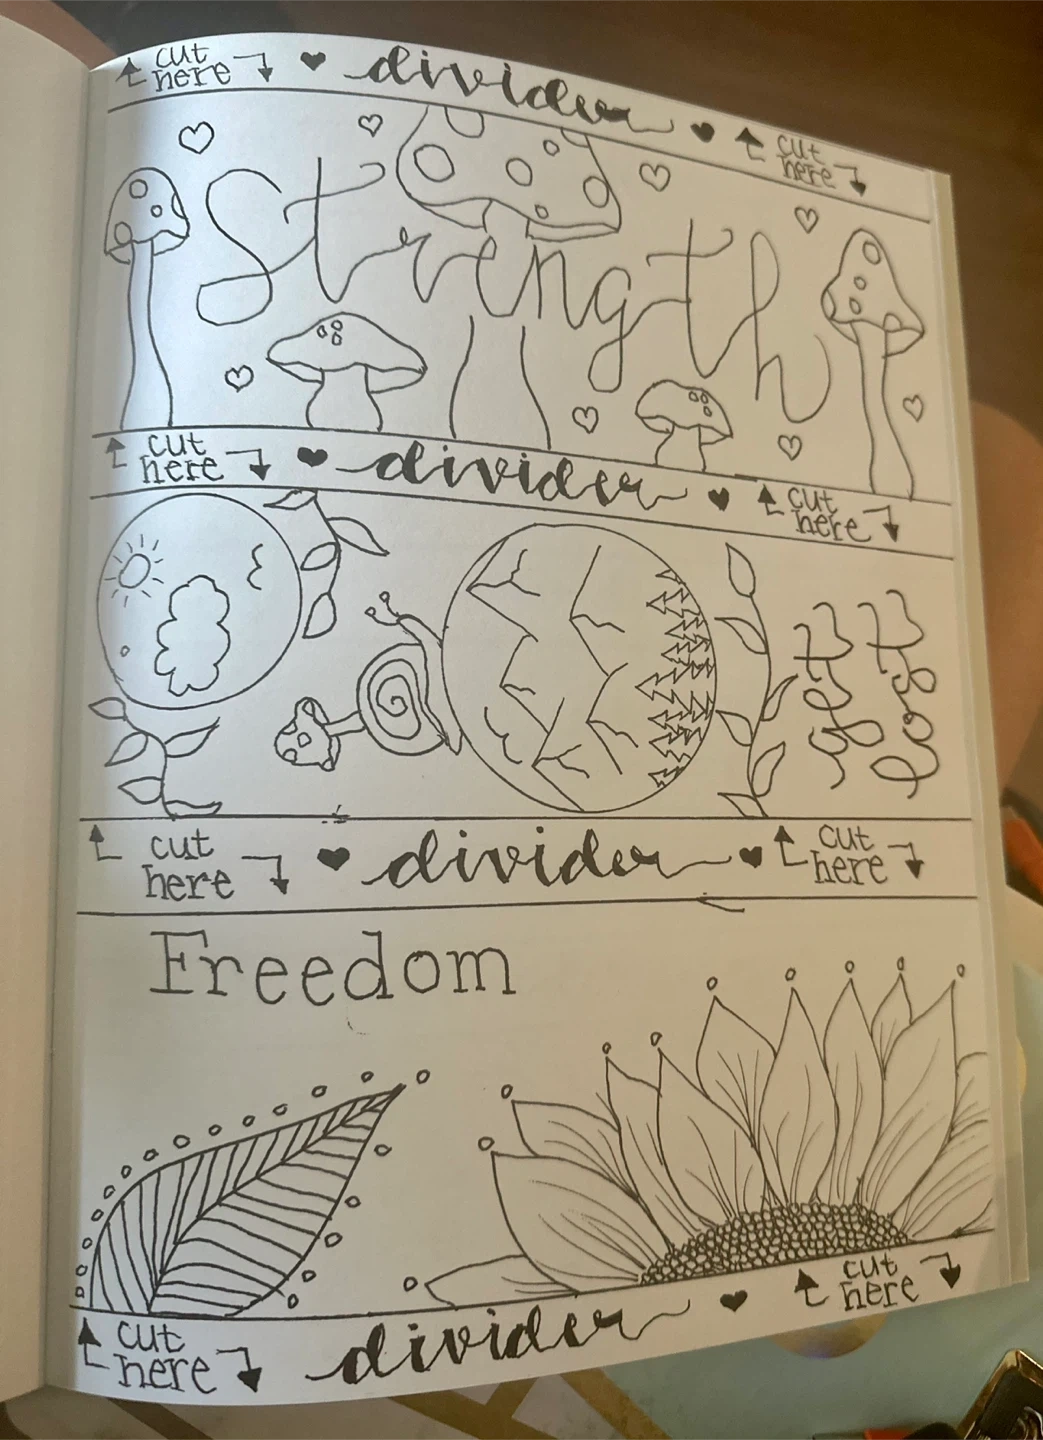 cut here divider cut here
Strength
cut here divider cut here
get lost
cut here divider cut here
Freedom
cut here divider cut here